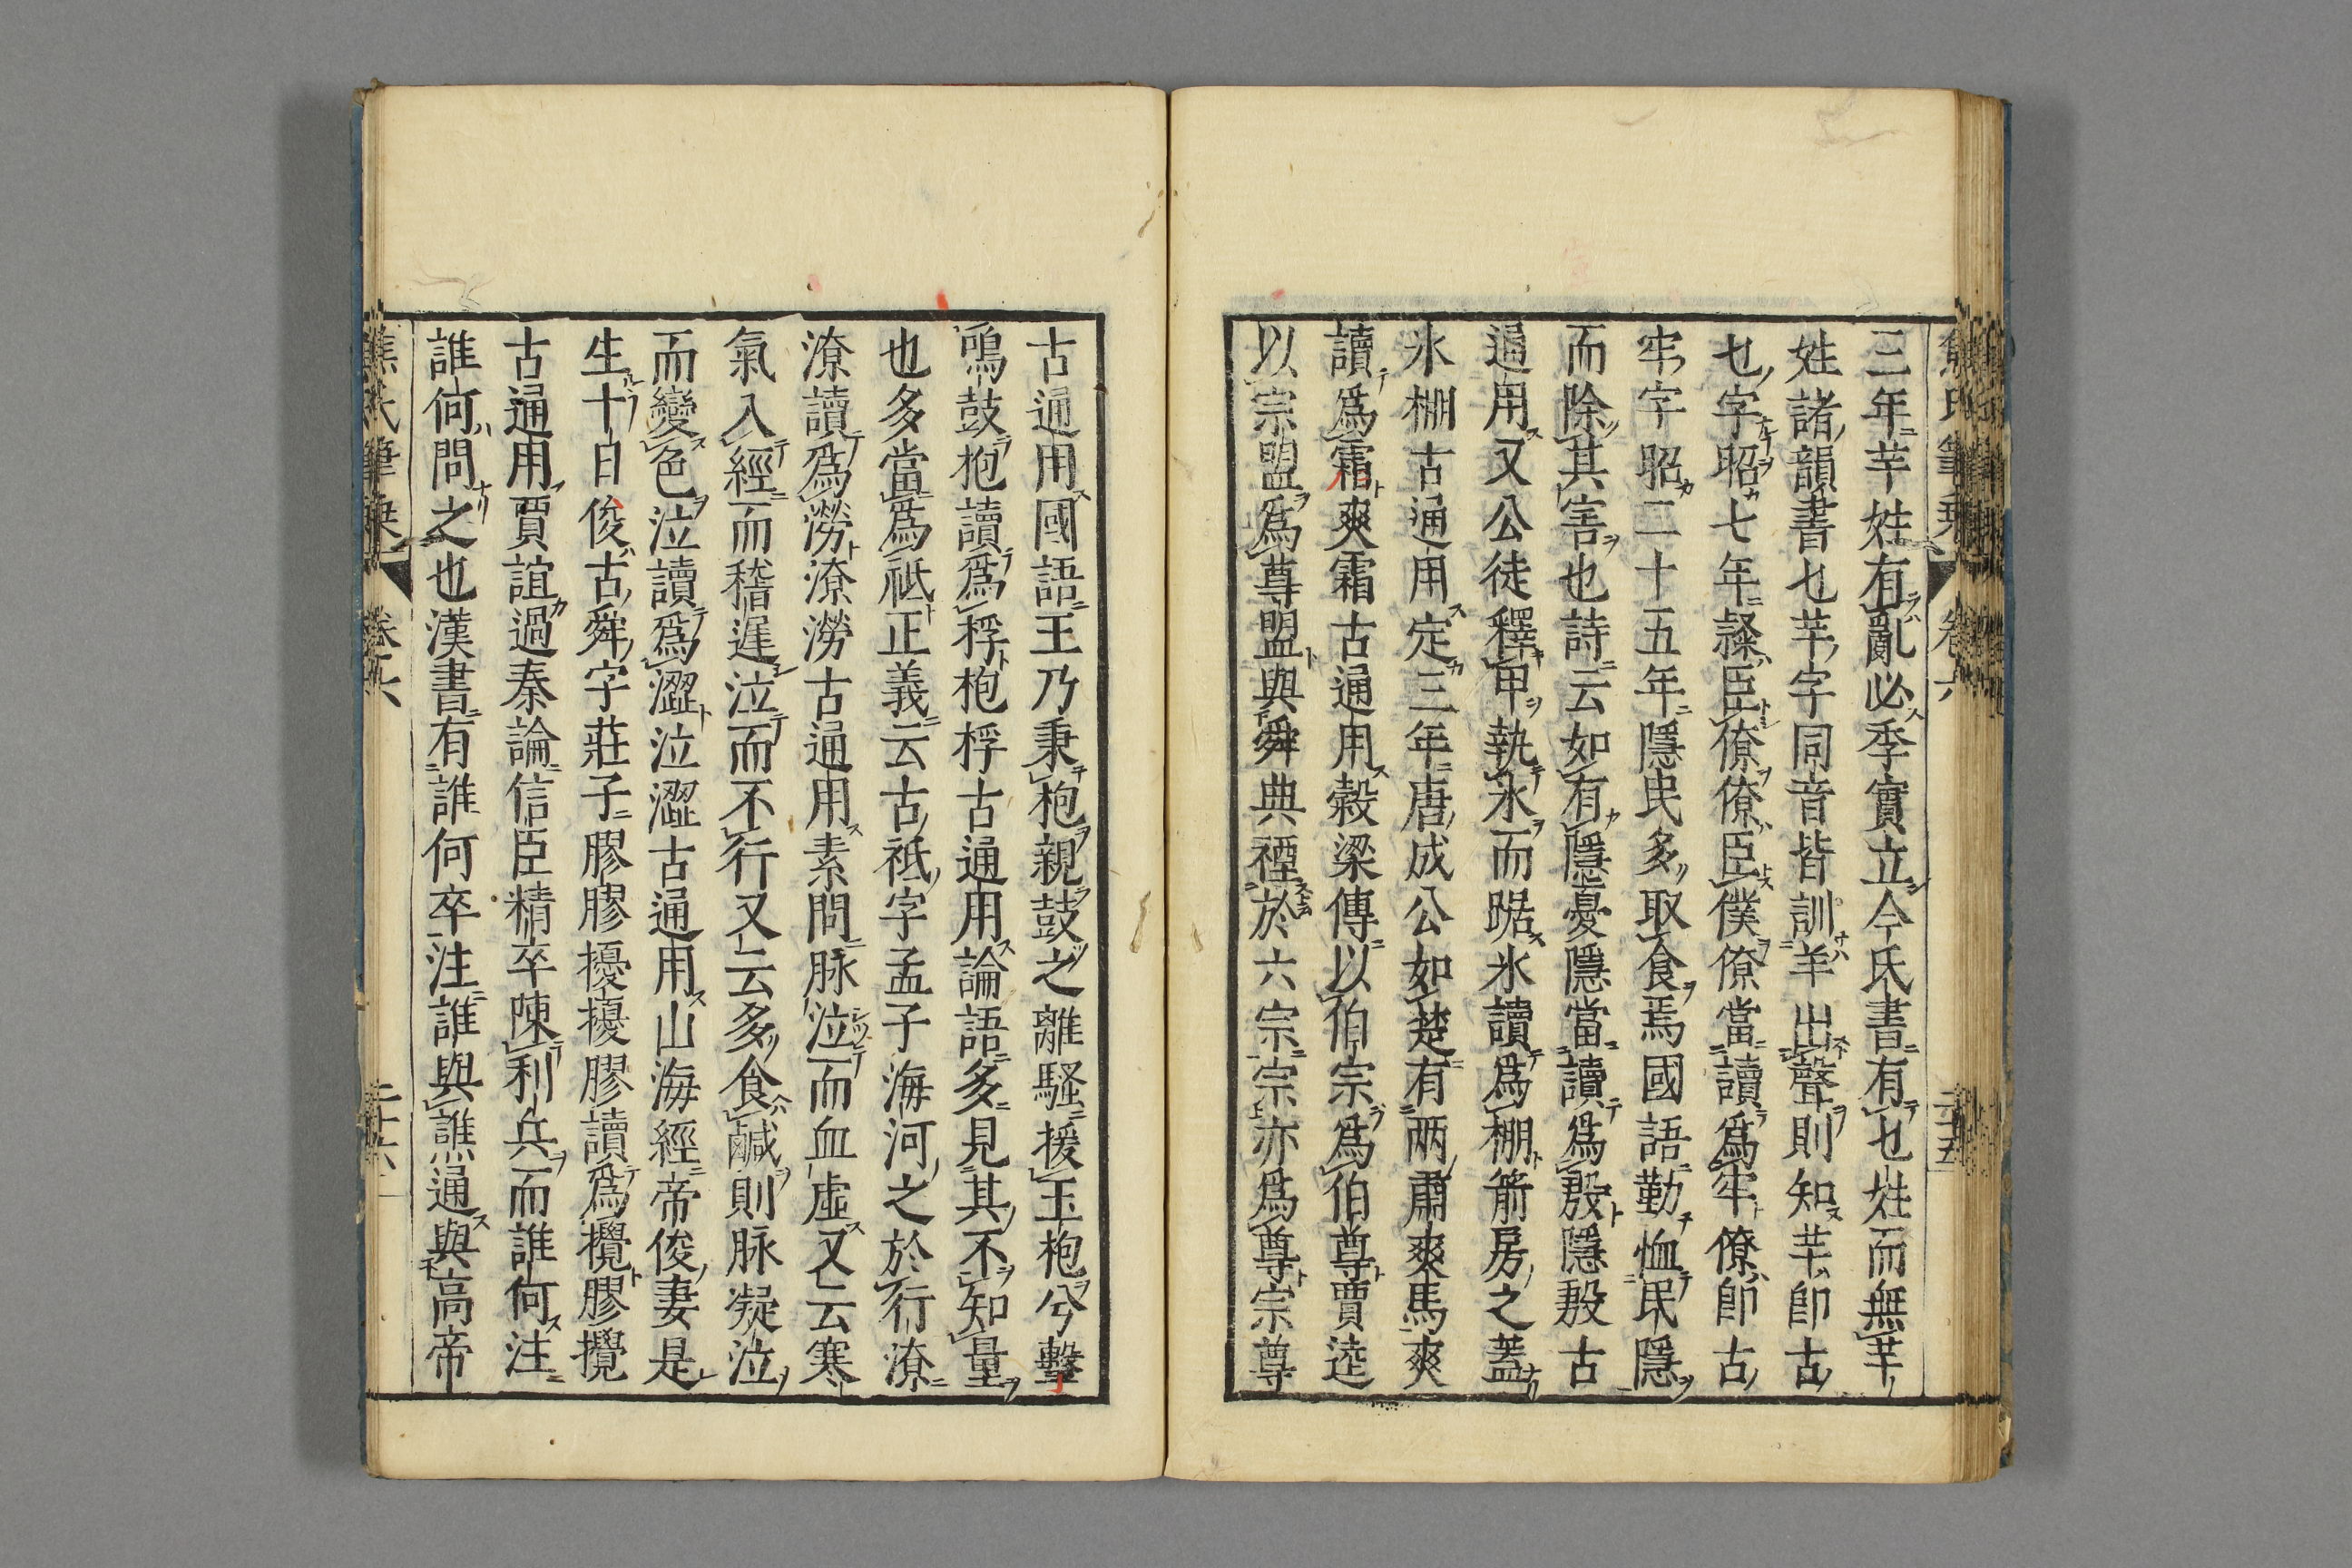 三年芉姓有亂必季實立今氏書有乜姓而無芉
姓諸韻書乜芉字同音皆訓羊出聲則知芉即古
乜字昭七年隸臣僚僚臣僕僚當讀爲牢僚即古
牢字昭二十五年隱民多取食焉國語勤恤民隱
而除其害也詩云如有隱憂隱當讀爲殷隱殷古
通用又公徒釋甲執氷而踞氷讀爲棚箭房之蓋
氷棚古通用定三年唐成公如楚有兩肅爽馬爽
讀爲霜爽霜古通用穀梁傳以伯宗爲伯尊賈逵
以宗盟爲尊盟與舜典禋於六宗宗亦爲尊宗尊
古通用國語王乃秉枹親鼓之離騷援玉枹兮擊
鳴鼓枹讀爲桴枹桴古通用論語多見其不知量
也多當爲祇正義云古祇字孟子海河之於行潦
潦讀爲澇潦澇古通用素問脉泣而血虛又云寒
氣入經而稽遲泣而不行又云多食鹹則脉凝泣
而變色泣讀爲澀泣澀古通用山海經帝俊妻是
生十日俊古舜字莊子膠膠擾擾膠讀爲攪膠攪
古通用賈誼過秦論信臣精卒陳利兵而誰何注
誰何問之也漢書有誰何卒注誰與譙通與高帝
焦氏筆乘 卷六 二十六